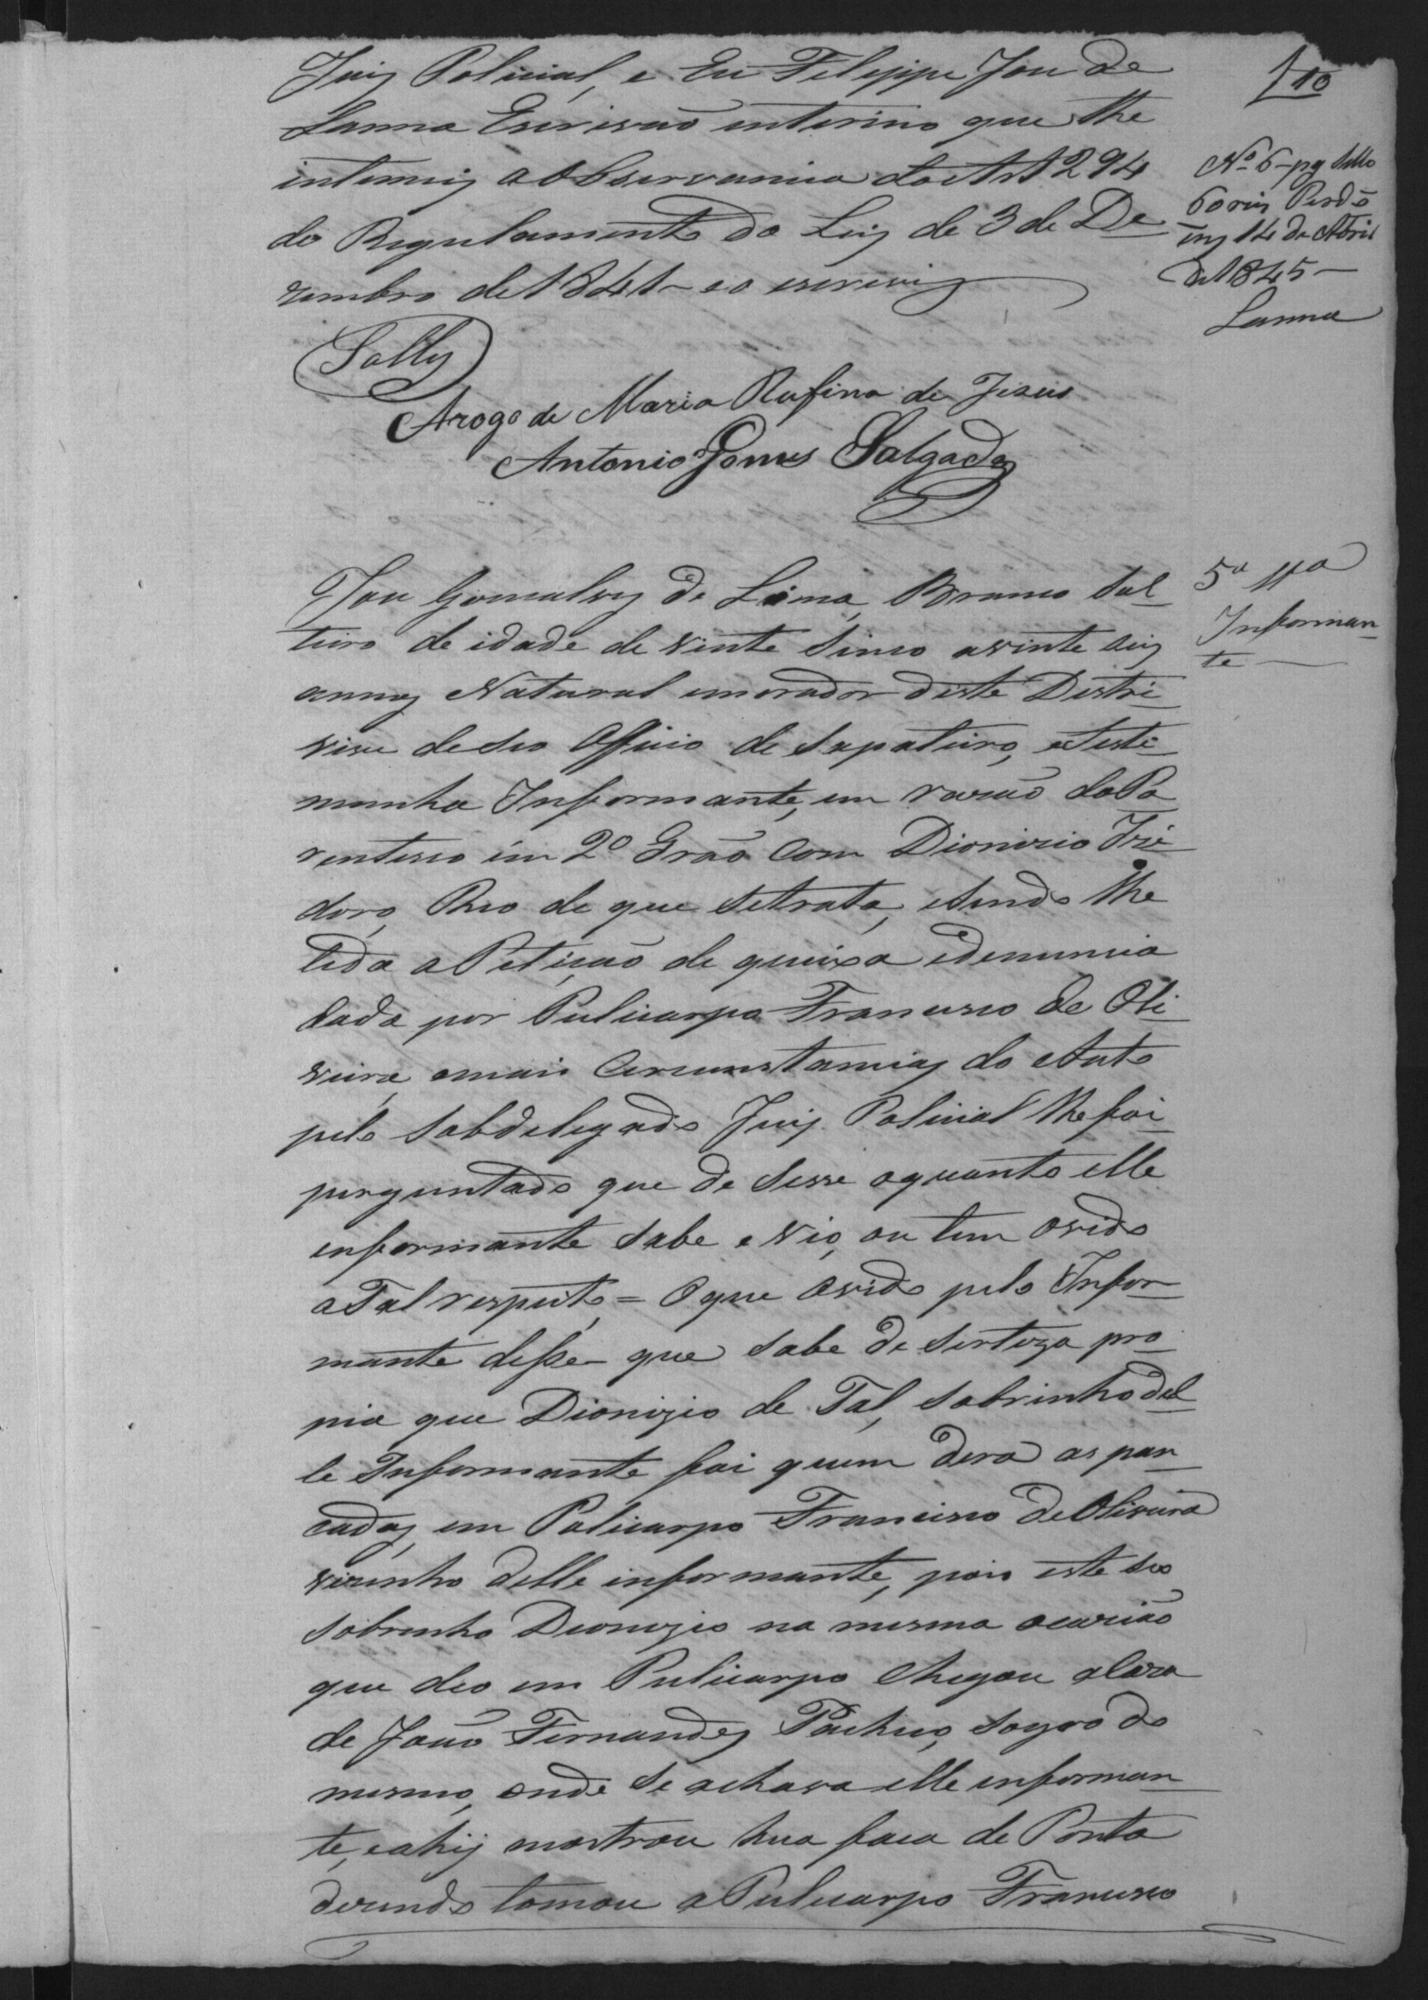 Juiz Policial, e Eu Felippe Joze de
Lanna Escrivaõ interino que lhe
intimey a observancia do Art 294
do Regulamento da Ley de 3 de De
zembro de 1841 – e o escrevy
Salles
Arogo de Maria Rufina de Jesus
Antonio Gomes Salgado
10
Nº 6 – pg Sello
60 reis
14 de Abril
de 1845 –
Lanna
5ª ttª
Informan
te
Joze Gonsalvez de Lima, Branco Sol
teiro de idade de vinte sinco avinte seis
annos Natural emorador deste Destri
vive de seo Officio de Sapateiro, eteste
munha Informante, em razaõ do Pa
rentesco em 2º Graõ com Dionizio Izi
doro, Reo de que setrata, esendo lhe
lida a Petiçaõ de queixa edenuncia
dada por Pulicarpo Francisco de Oli
veira, emais Circunstancias do Auto
pelo Sobdelegado Juiz Policial lhe foi
perguntado que de Sesse oquanto elle
enformante Sabe e Vio, ou tem ovido
aTal respeito = Oque Ovido pelo Infor
mante disse – que Sabe de Serteza pro
pia que Dionizio de Tal, Sobrinho del
le Informante foi quem dera as pan
cadas em Policarpo Francisco de Oliveira
vizinho delle informante, pois este seo
Sobrinho Dionizio na mesma ocaziaõ
que deo em Pulicarpo Chegou aCaza
de Joaõ Fernandes Pacheco, Sogro do
mesmo, onde Se achava elle informan
te, eahy mostrou hua faca de Ponta
dizendo tomou a Pulicarpo Francisco